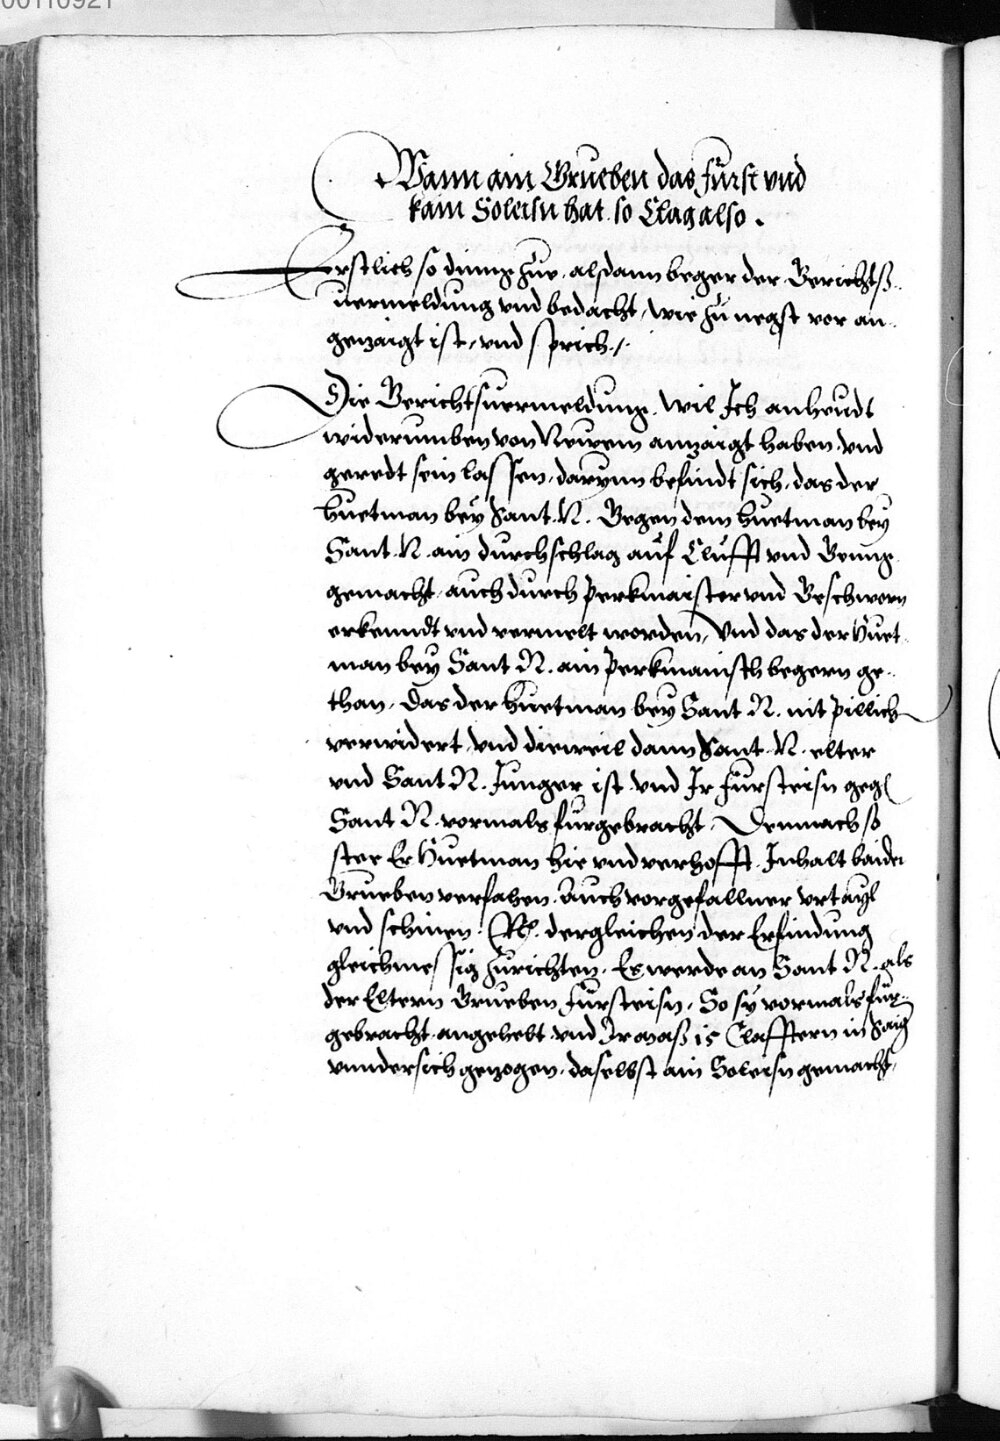 00110921
Wann ain Grueben das fürst vnd
kain Soleisn hat so Clag also.
Erstlich so dinng Züe, alsdann beger der Gerichtß
uermeldung vnd bedacht, wie zů negst vor an-
gezaigt ist, vnd sprich /.
Die Gerichtsuermeldung, wil Ich anheudt
widerumben von Newem anzaigt haben, vnd
geredt sein lassen, darynn befindt sich, das der
huetman bey Sant. N. Gegen dem huetman bey
Sant. N. ain durchschlag auf Clüfft vnd Geng
gemacht, auch durch perkmaister vnd Geschworn
erkenndt vnd vermelt worden, Vnd das der Huet-
man bey Sant N. ain perkmanisch begern ge-
than, Das der huetman bey Sant N. nit pillich
verwidert, vnd dieweil dann Sant. N. elter
vnd Sant N. Junger ist vnd Ir fürsteisn geg
Sant N. vormals fürgebracht, Demnach so
stee Er Huetman hie vnd verhofft, Inhalt baider
Grueben verfahen, Auch vorgefallner vrtayl
vnd schinen, dergleichen der Erfindung
gleichmessig zurichten, Es werde an Sant N. als
der Eltern Grueben fürsteisn, So sy vormals für-
gebracht, angehebt vnd Ir maß 15 Claffern in Saig
vnndersich gezogen, daselbst ain Soleisn gemacht,